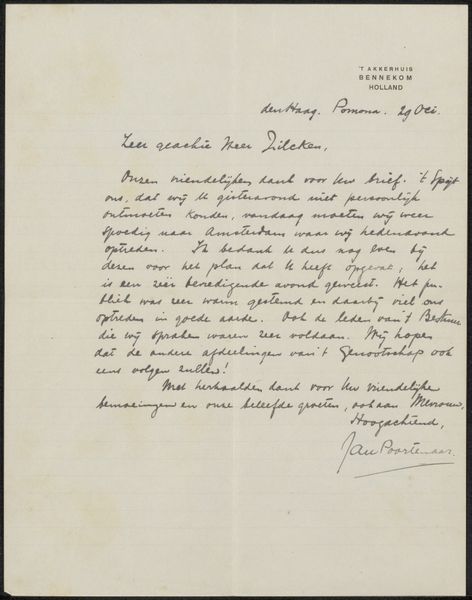 'T AKKERHUIS
BENNEKOM
HOLLAND
den Haag. Pomona. 29 Oct.
Zeer geachte Heer Zilcken,
Onzen vriendelijken dank voor Uw brief. 't Spijt
ons, dat wij U gisteravond niet persoonlijk
ontmoeten konden, vandaag moeten wij weer
spoedig naar Amsterdam waar wij hedenavond
optreden. Ik bedank U dus nog even bij
dezen voor het plan dat U heeft opgevat, het
is een zéér bevredigende avond geweest. Het pu-
bliek was zeer warm gestemd en daarbij viel ons
optreden in goede aarde. Ook de leden van 't Bestuur
die wij spraken waren zeer voldaan. Wij hopen
dat de andere afdeelingen van 't Genootschap ook
eens volgen zullen!
Met herhaalden dank voor Uw vriendelijke
bemoeiingen en onze beleefde groeten, ook aan Mevrouw,
Hoogachtend,
Jan Poortenaar.